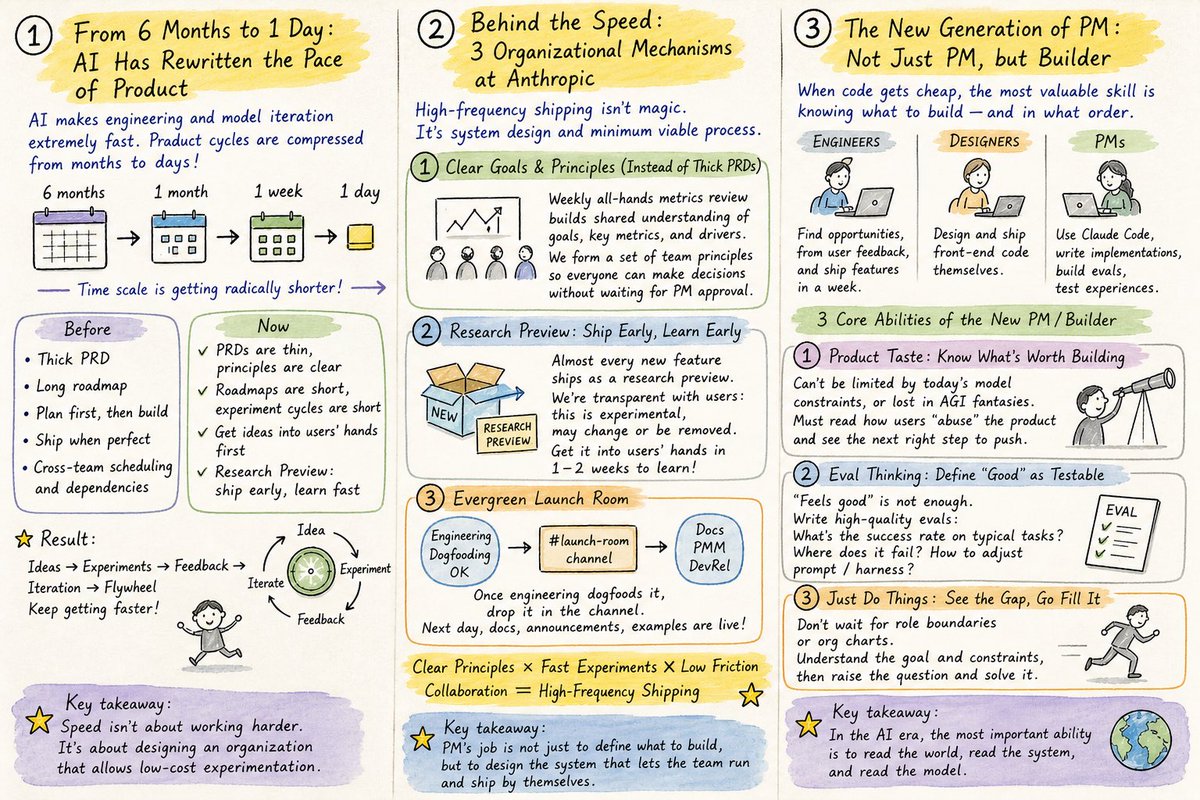 1
From 6 Months to 1 Day:
AI Has Rewritten the Pace
of Product
AI makes engineering and model iteration
extremely fast. Product cycles are compressed
from months to days!
6 months
1 month
1 week
1 day
Time scale is getting radically shorter!
Before
• Thick PRD
• Long roadmap
• Plan first, then build
• Ship when perfect
• Cross-team scheduling
and dependencies
Now
✓ PRDs are thin,
principles are clear
✓ Roadmaps are short,
experiment cycles are short
✓ Get ideas into users' hands
first
✓ Research Preview:
ship early, learn fast
Result:
Ideas → Experiments → Feedback →
Iteration → Flywheel
Keep getting faster!
Idea
Experiment
Feedback
Iterate
Key takeaway:
Speed isn't about working harder.
It's about designing an organization
that allows low-cost experimentation.
2
Behind the Speed:
3 Organizational Mechanisms
at Anthropic
High-frequency shipping isn't magic.
It's system design and minimum viable process.
1 Clear Goals & Principles (Instead of Thick PRDs)
Weekly all-hands metrics review
builds shared understanding of
goals, key metrics, and drivers.
We form a set of team principles
so everyone can make decisions
without waiting for PM approval.
2 Research Preview: Ship Early, Learn Early
NEW
RESEARCH
PREVIEW
Almost every new feature
ships as a research preview.
We're transparent with users:
this is experimental,
may change or be removed.
Get it into users' hands in
1–2 weeks to learn!
3 Evergreen Launch Room
Engineering
Dogfooding
OK
#launch-room
channel
Docs
PMM
DevRel
Once engineering dogfoods it,
drop it in the channel.
Next day, docs, announcements, examples are live!
Clear Principles × Fast Experiments × Low Friction
Collaboration = High-Frequency Shipping
Key takeaway:
PM's job is not just to define what to build,
but to design the system that lets the team run
and ship by themselves.
3
The New Generation of PM:
Not Just PM, but Builder
When code gets cheap, the most valuable skill is
knowing what to build — and in what order.
ENGINEERS
Find opportunities,
from user feedback,
and ship features
in a week.
DESIGNERS
Design and ship
front-end code
themselves.
PMs
Use Claude Code,
write implementations,
build evals,
test experiences.
3 Core Abilities of the New PM / Builder
1 Product Taste: Know What's Worth Building
Can't be limited by today's model
constraints, or lost in AGI fantasies.
Must read how users "abuse" the product
and see the next right step to push.
2 Eval Thinking: Define "Good" as Testable
"Feels good" is not enough.
Write high-quality evals:
What's the success rate on typical tasks?
Where does it fail? How to adjust
prompt / harness?
EVAL
3 Just Do Things: See the Gap, Go Fill It
Don't wait for role boundaries
or org charts.
Understand the goal and constraints,
then raise the question and solve it.
Key takeaway:
In the AI era, the most important ability
is to read the world, read the system,
and read the model.